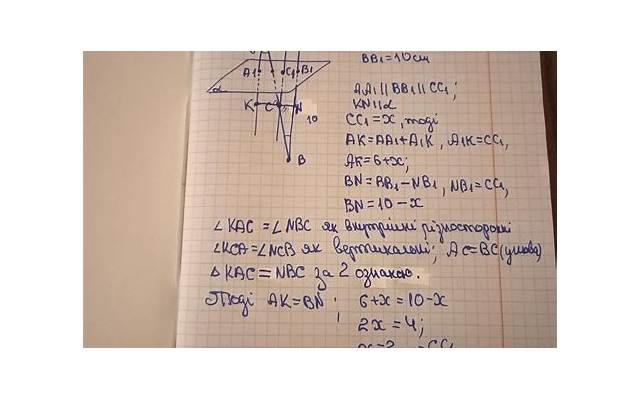 BB1=10см
A1
C1
B1
α
K
C
N
10
B
AA1||BB1||CC1;
KN||α
CC1=x, тоді
AK=AA1+A1K, A1K=CC1,
AK=6+x;
BN=BB1-NB1, NB1=CC1,
BN=10-x
∠KAC=∠NBC як внутрішні різносторонні
∠KCA=∠NCB як вертикальні; AC=BC(умова)
△KAC=NBC за 2 ознакою.
Тоді AK=BN; 6+x=10-x
2x=4;
x=2
CC1